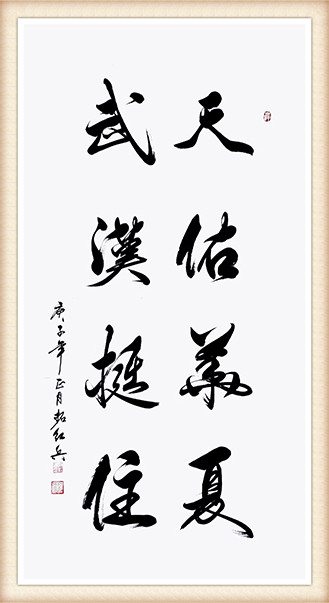 天佑華夏
武漢挺住
庚子年正月